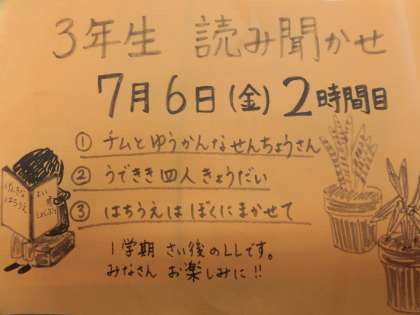 3年生 読み聞かせ
7月6日(金)2時間目
① チムとゆうかんなせんちょうさん
② うできき四人きょうだい
③ はちうえはぼくにまかせて
1学期 さい後のLLです。
みなさん お楽しみに!!